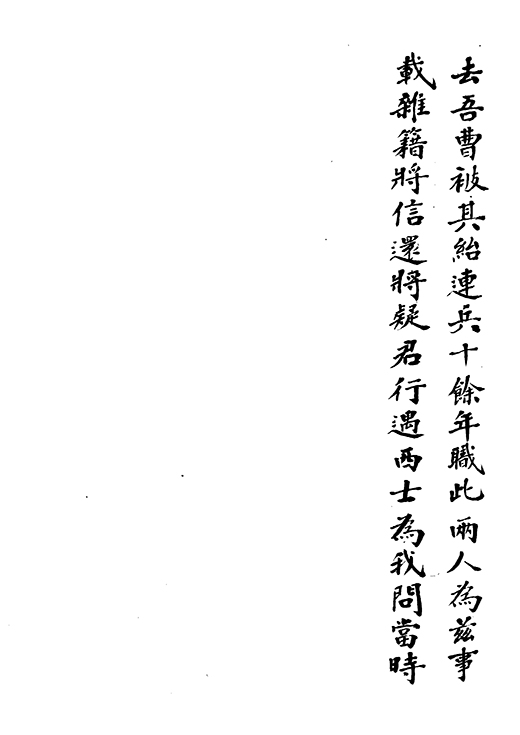 去吾曹被其紿連兵十餘年職此兩人為兹事
載雜籍將信還將疑君行遇西士為我問當時